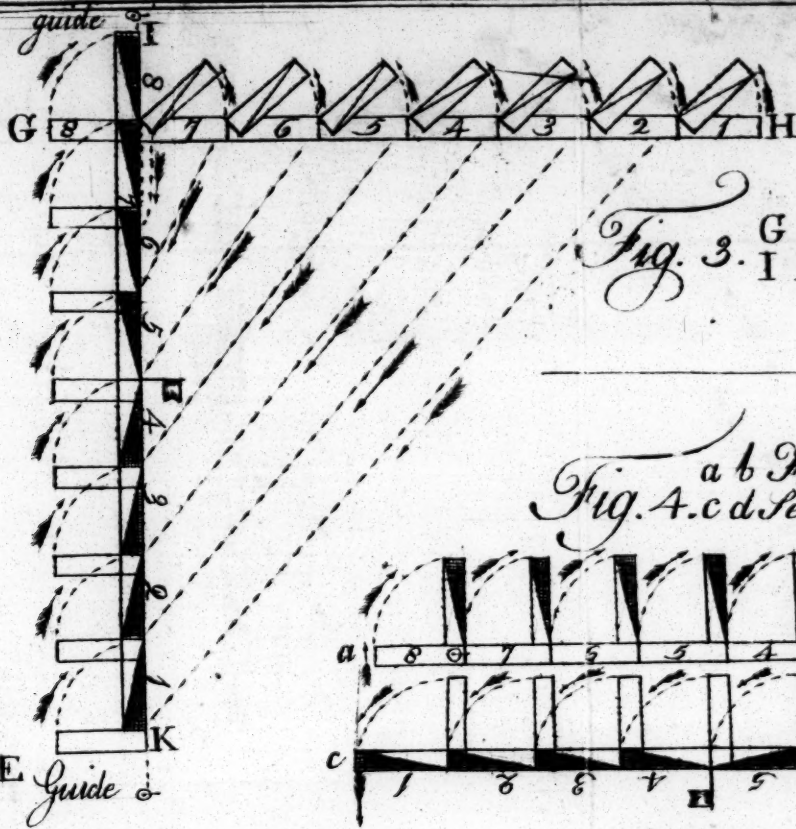 guide
I
8
G 8 7 6 5 4 3 2 1 H
7
6
5
4
3
2
1
K
E
Guide
Fig. 3. G
I
a b
Fig. 4. c d Se
a 8 7 6 5 4
c 1 2 3 4 5